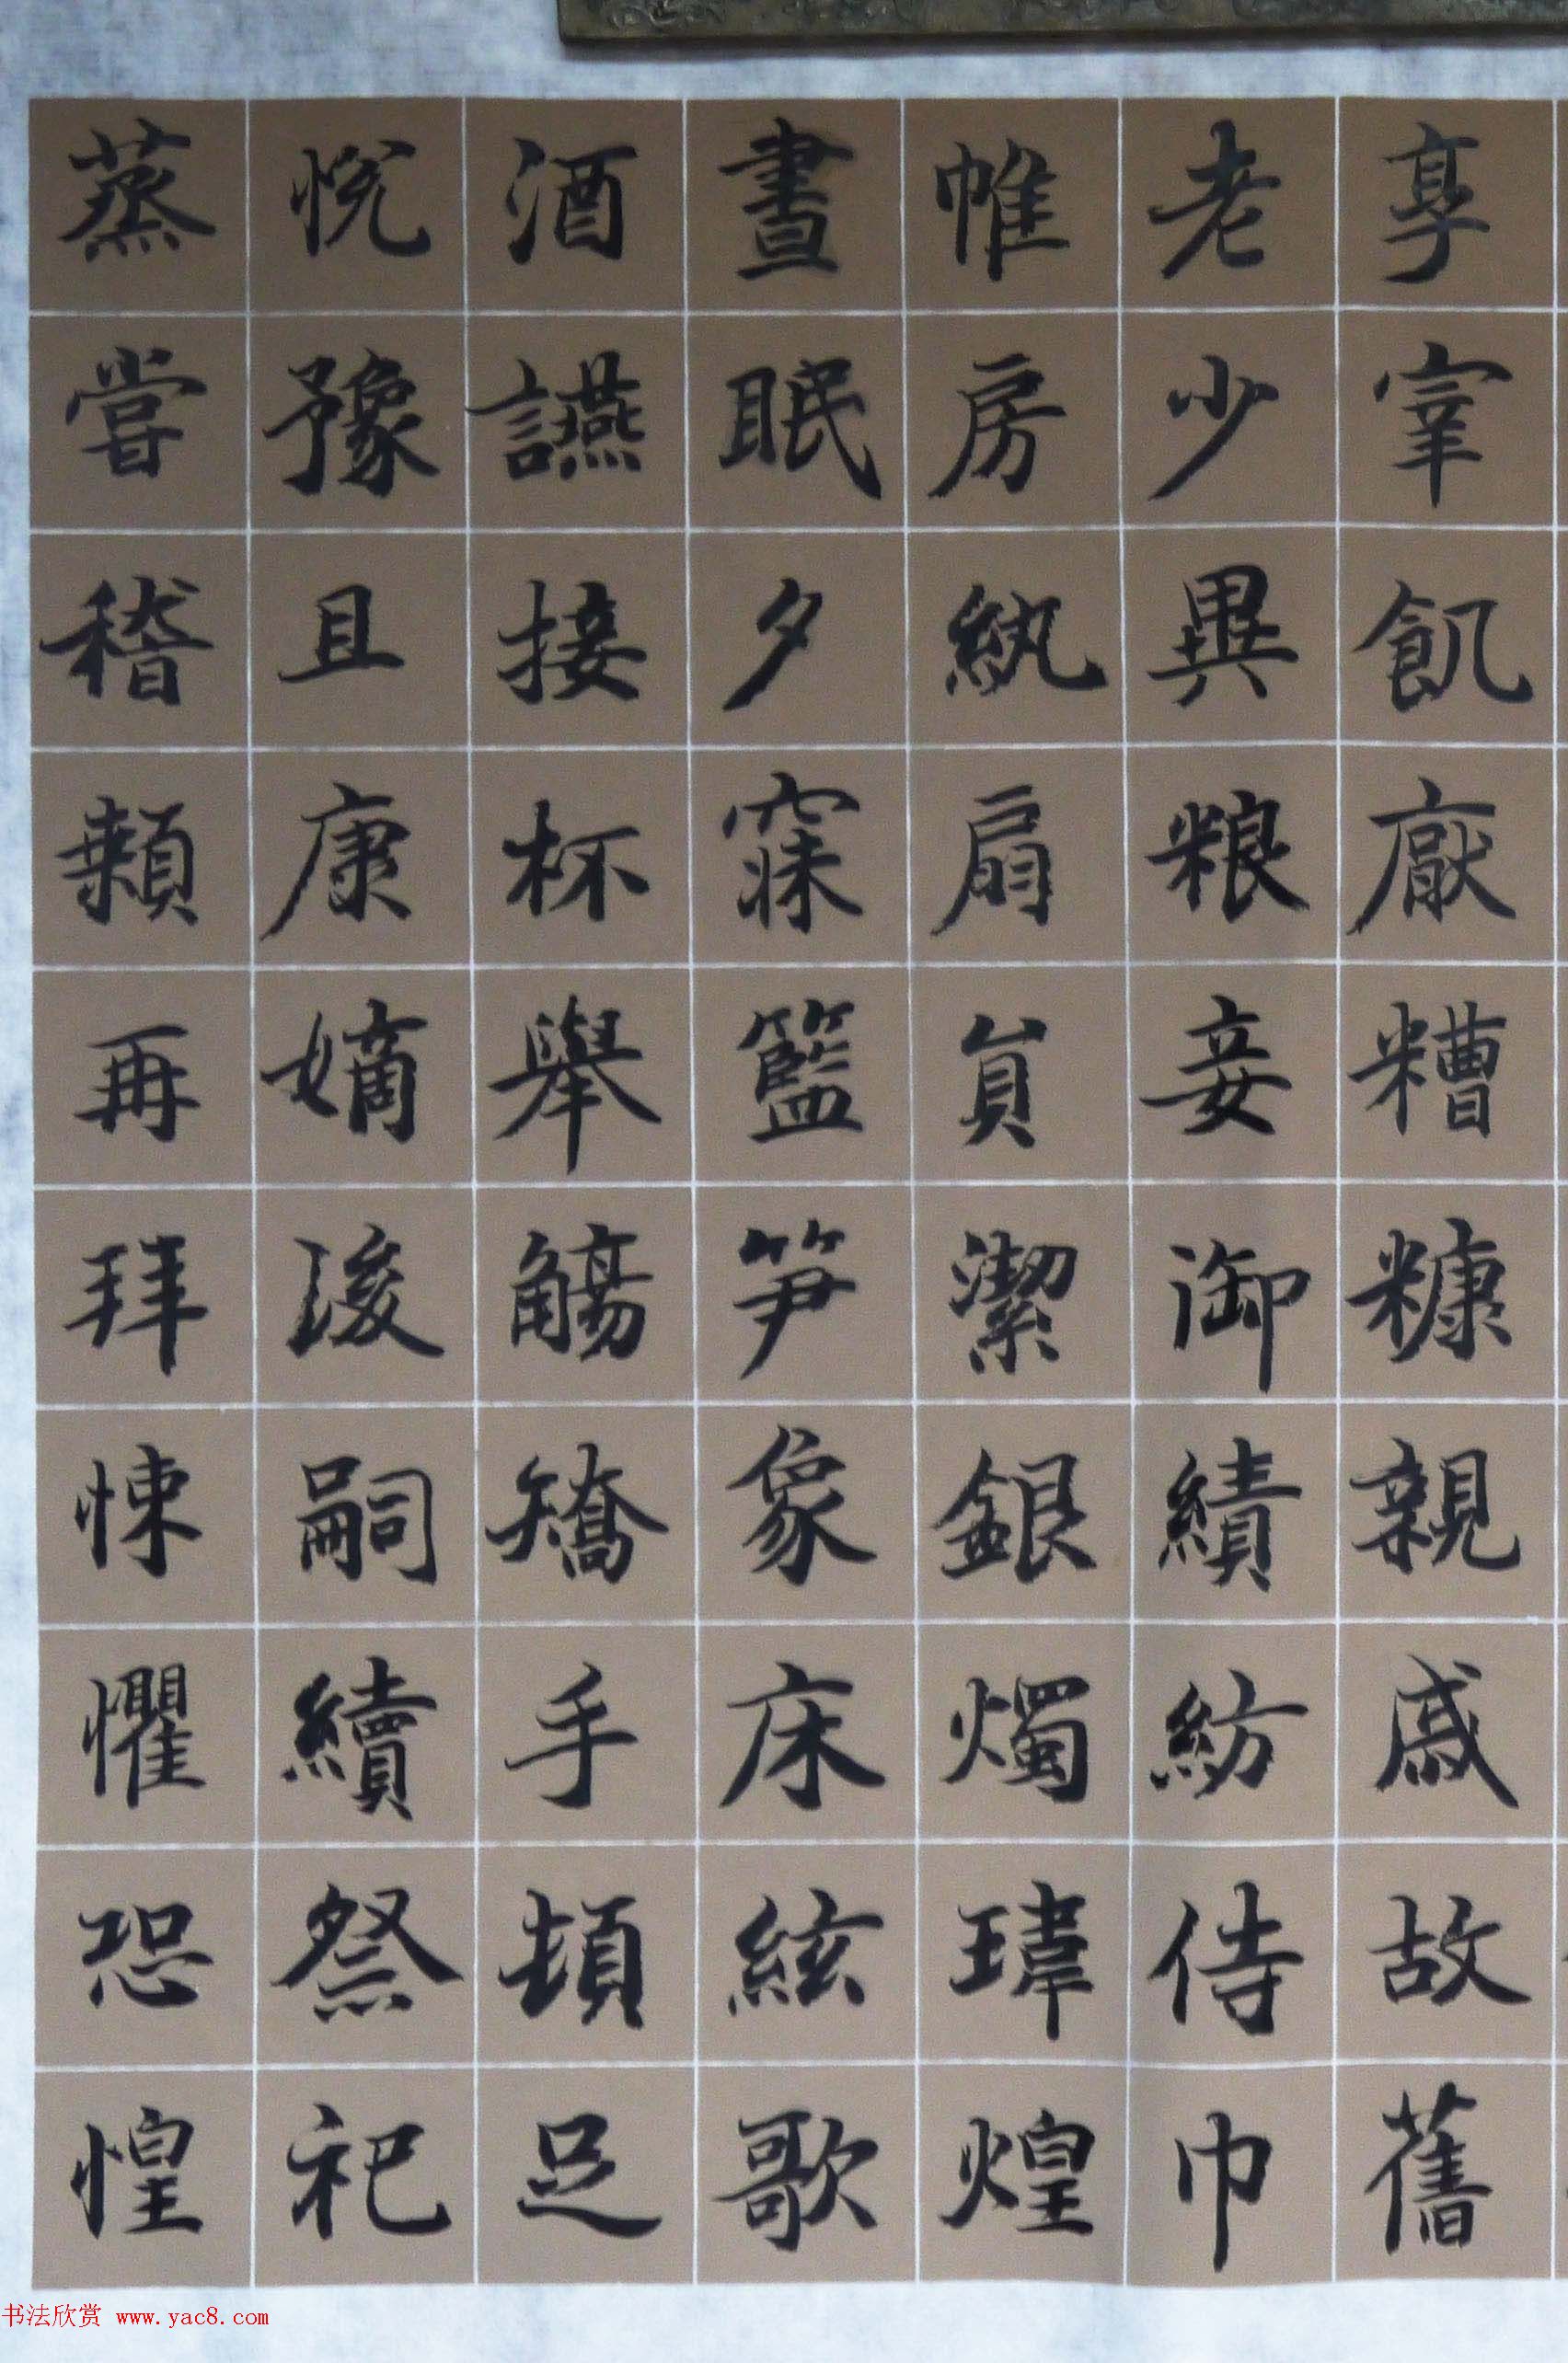 享宰飢厭糟糠親戚故舊
老少異粮妾御績紡侍巾
帷房紈扇員潔銀燭煒煌
晝眠夕寐籃笋象床絃歌
酒讌接杯舉觴矯手頓足
悅豫且康嫡後嗣續祭祀
蒸嘗稽顙再拜悚懼恐惶
书法欣赏 www.yac8.com